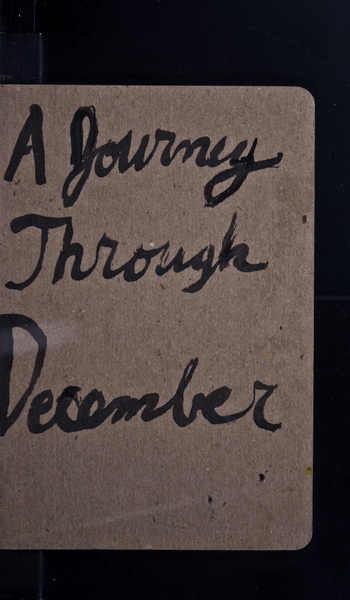 A Journey
Through
December